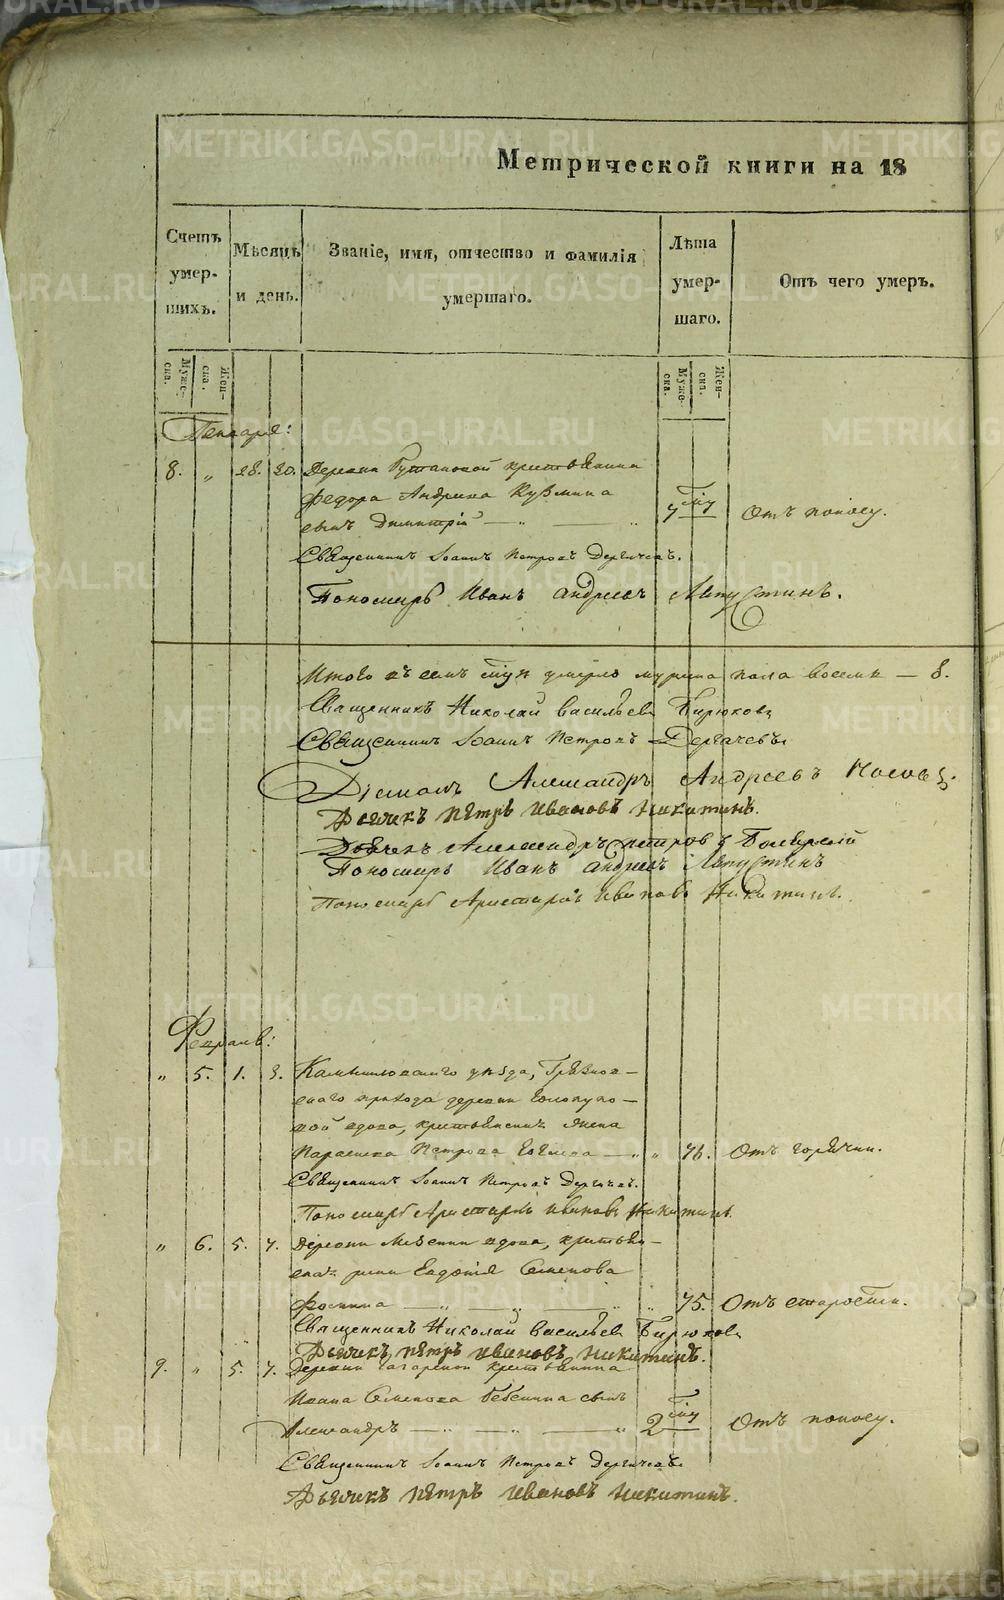 Метрической книги на 18
Счетъ умершихъ.
Мѣсяцъ и день.
Званіе, имя, отчество и фамилія умершаго.
Лѣта умершаго.
Отъ чего умеръ.
Мужеска. Женска.
Мужеска. Женска.
Генваря:
8. " 28. 30. Деревни крестьянина
Федора Андреева Кузмина
сынъ Димитрій — " — " 7 Отъ поносу.
Священникъ Іоаннъ Петровъ Дергачевъ.
Пономарь Иванъ Андреевъ Августинъ.
Итого въ семъ умерло мужеска пола восемь — 8.
Священникъ Николай Васильевъ Бирюковъ
Священникъ Іоаннъ Петровъ Дергачевъ
Діаконъ Александръ Андреевъ Носовъ.
Дьячекъ Петръ Ивановъ Никитинъ.
Дьячекъ Александръ Петровъ
Пономарь Иванъ Андреевъ Августинъ
Пономарь Аристархъ Ивановъ Никитинъ.
Февраль:
" 5. 1. 3. Камышловскаго уѣзда, Грязнов-
скаго прихода деревни
вой вдова, крестьянская жена
Параскева Петрова — " " 76. Отъ горячки.
Священникъ Іоаннъ Петровъ Дергачевъ.
Пономарь Аристархъ Ивановъ Никитинъ.
" 6. 5. 7. Деревни вдова, крестьян-
ская жена Евдокія Семенова
Фомина — " — " — " " 75. Отъ старости.
Священникъ Николай Васильевъ Бирюковъ
Дьячекъ Петръ Ивановъ Никитинъ.
9. " 5. 7. Деревни крестьянина
Ивана Семенова сынъ
Александръ — " — " — " 2 Отъ поносу.
Священникъ Іоаннъ Петровъ Дергачевъ
Дьячекъ Петръ Ивановъ Никитинъ.
METRIKI.GASO-URAL.RU